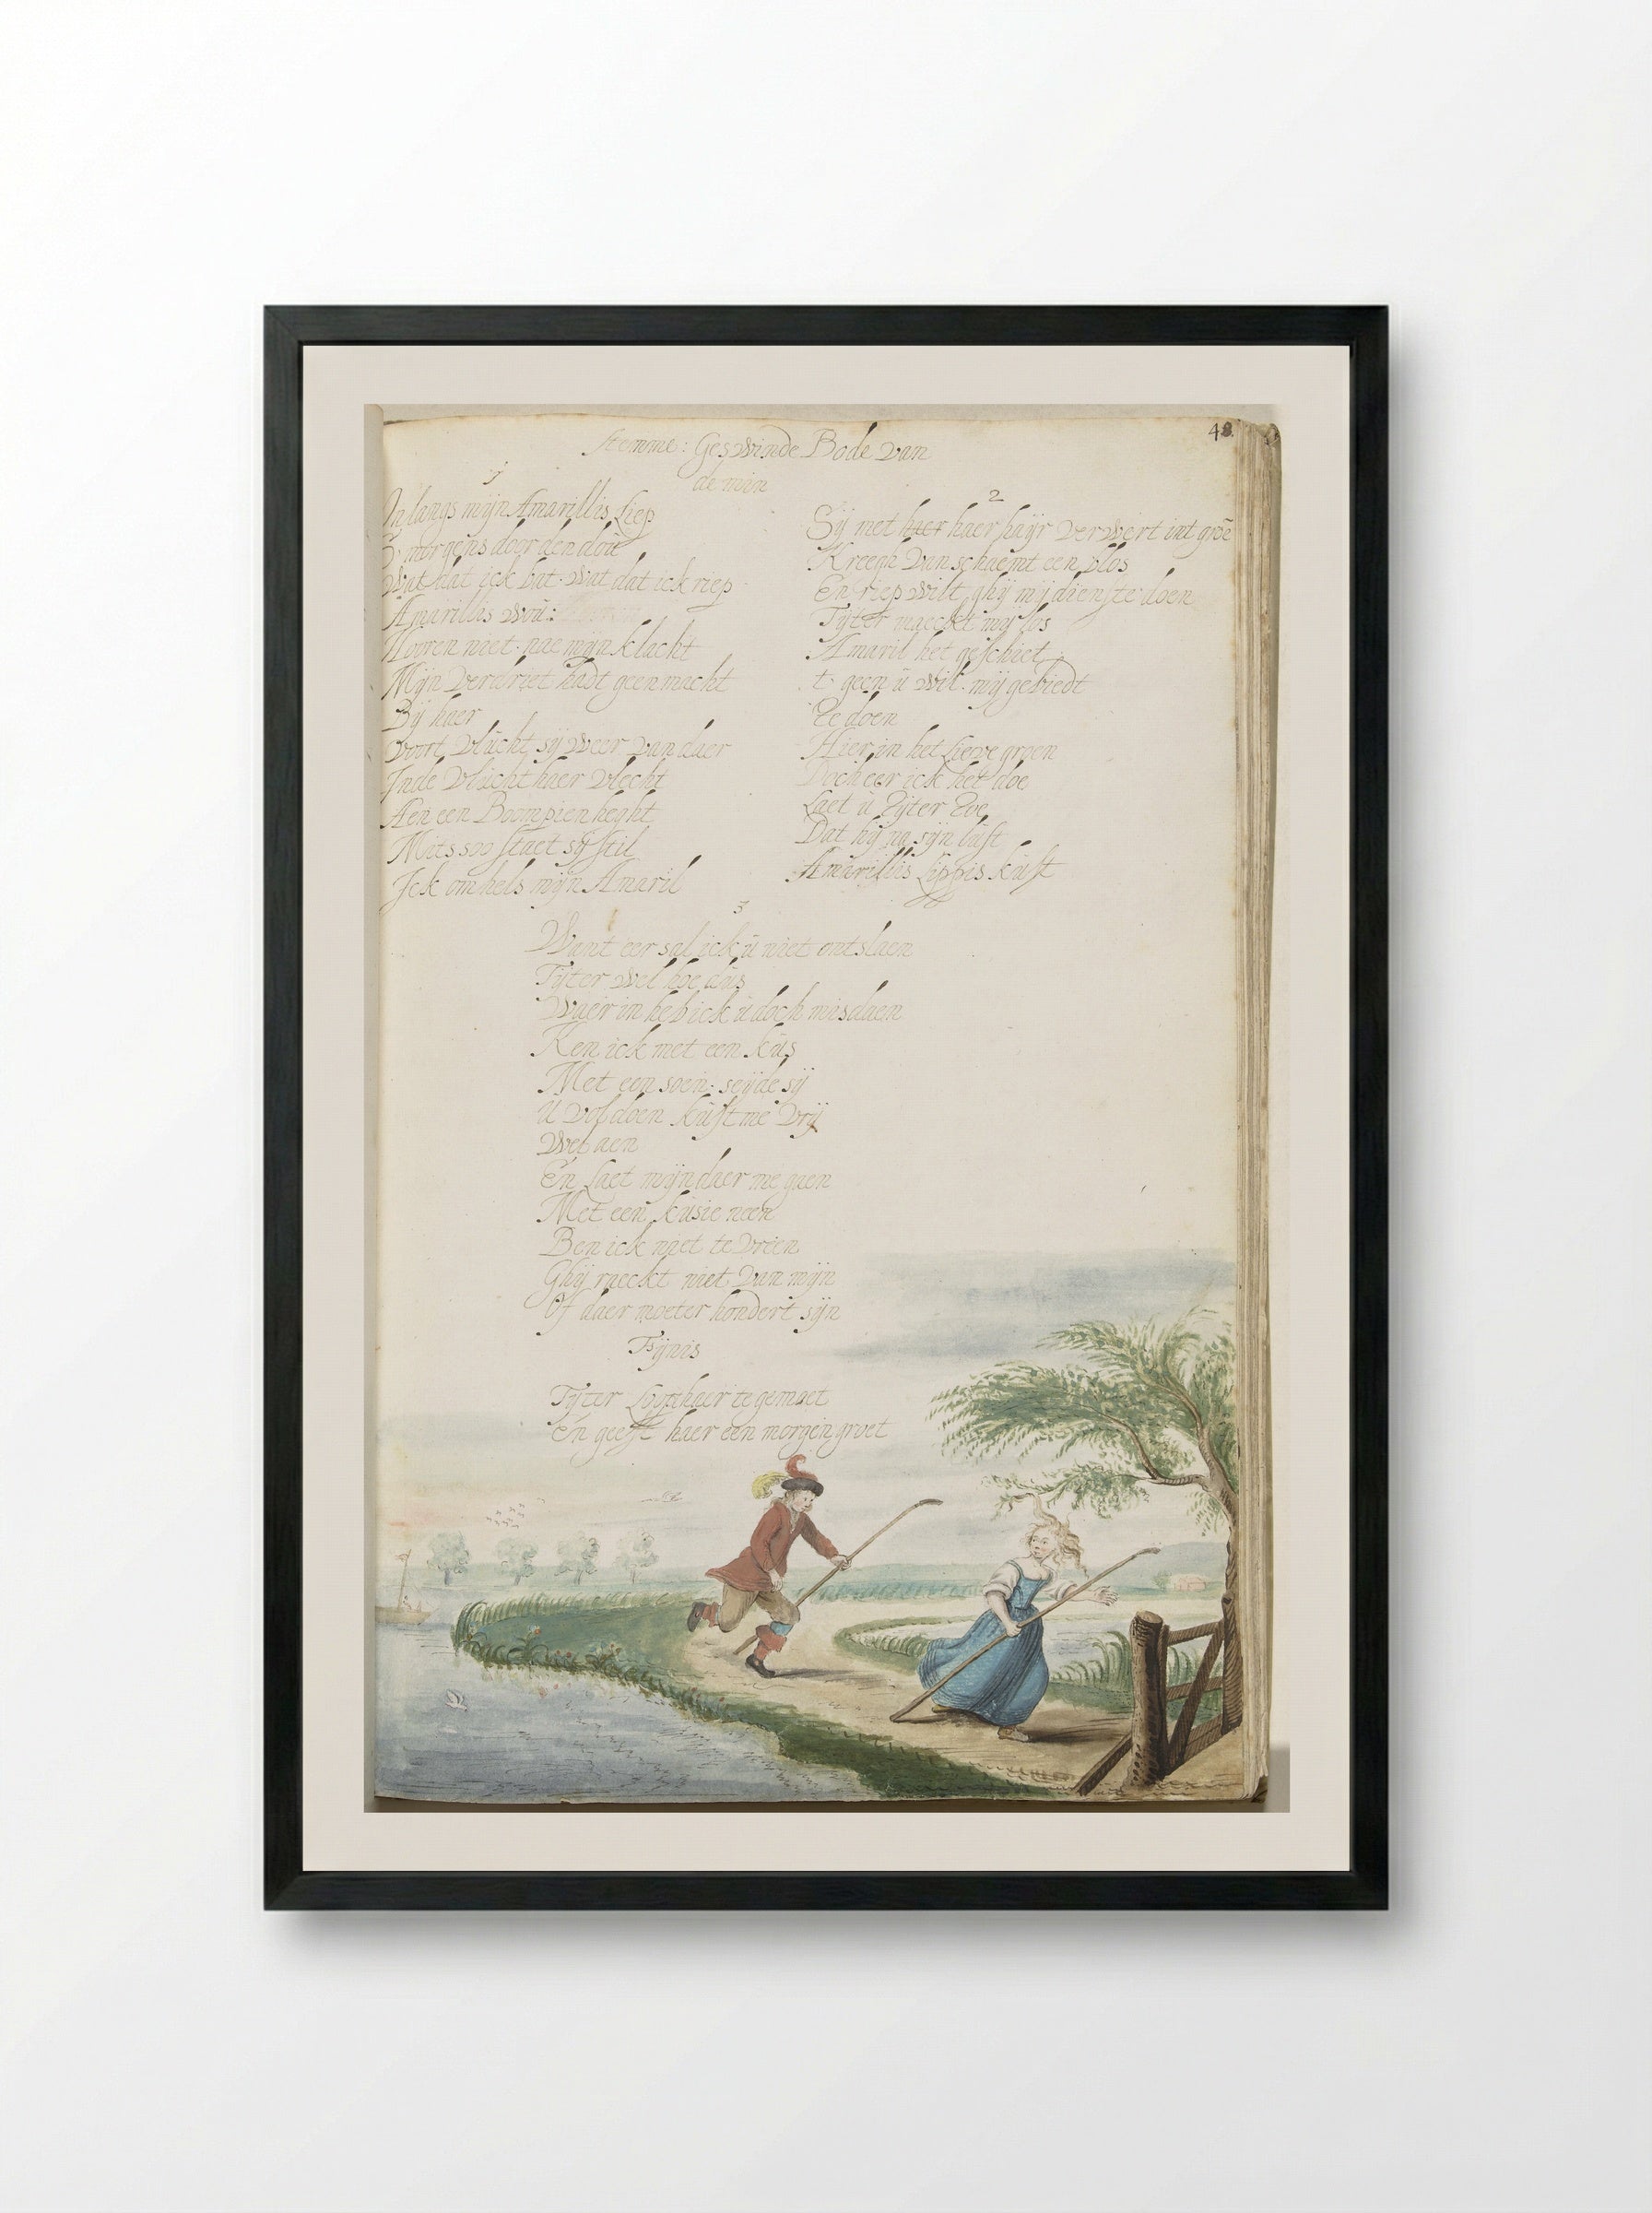 48.
Stemme: Geswinde Bode van
de min
1
In langs mijn Amarillis Liep
S'morgens door den dou
Wat dat ick bat. wat dat ick riep
Amarillis wou:
Hooren niet. nae mijn klacht
Mijn verdriet hadt geen macht
Bij haer
Voort vlucht sij weer van daer
Inde vlucht haer vlecht
Aen een Boompien heght
Mits soo staet sij stil
Ick omhels mijn Amaril
2
Sij met haer haer hayr verwert int groē
Kreegh van schaemt een blos
En riep wilt ghij mij dienste doen
Tijter maeckt mij los
Amaril het geschiet
t. geen ú wil. mij gebiedt
Te doen
Hier in het Lieve groen
Doch eer ick het doe
Laet ú Tijter Toe
Dat hij na sijn lúst
Amarillis Lippis kúst
3
Want eer sal ick ú niet ontslaen
Tijter wel hoe dús
Waer in heb ick ú doch misdaen
Ken ick met een kús
Met een soen: seijde sij
U voldoen kúst me vrij
Wel aen
En Laet mijn daer me gaen
Met een kúsie neen
Ben ick niet te vreen
Ghij raeckt niet van mijn
Of daer moeter hondert sijn
Fijnis
Tijter Loopt haer te gemoet
en geeft haer een morgen groet